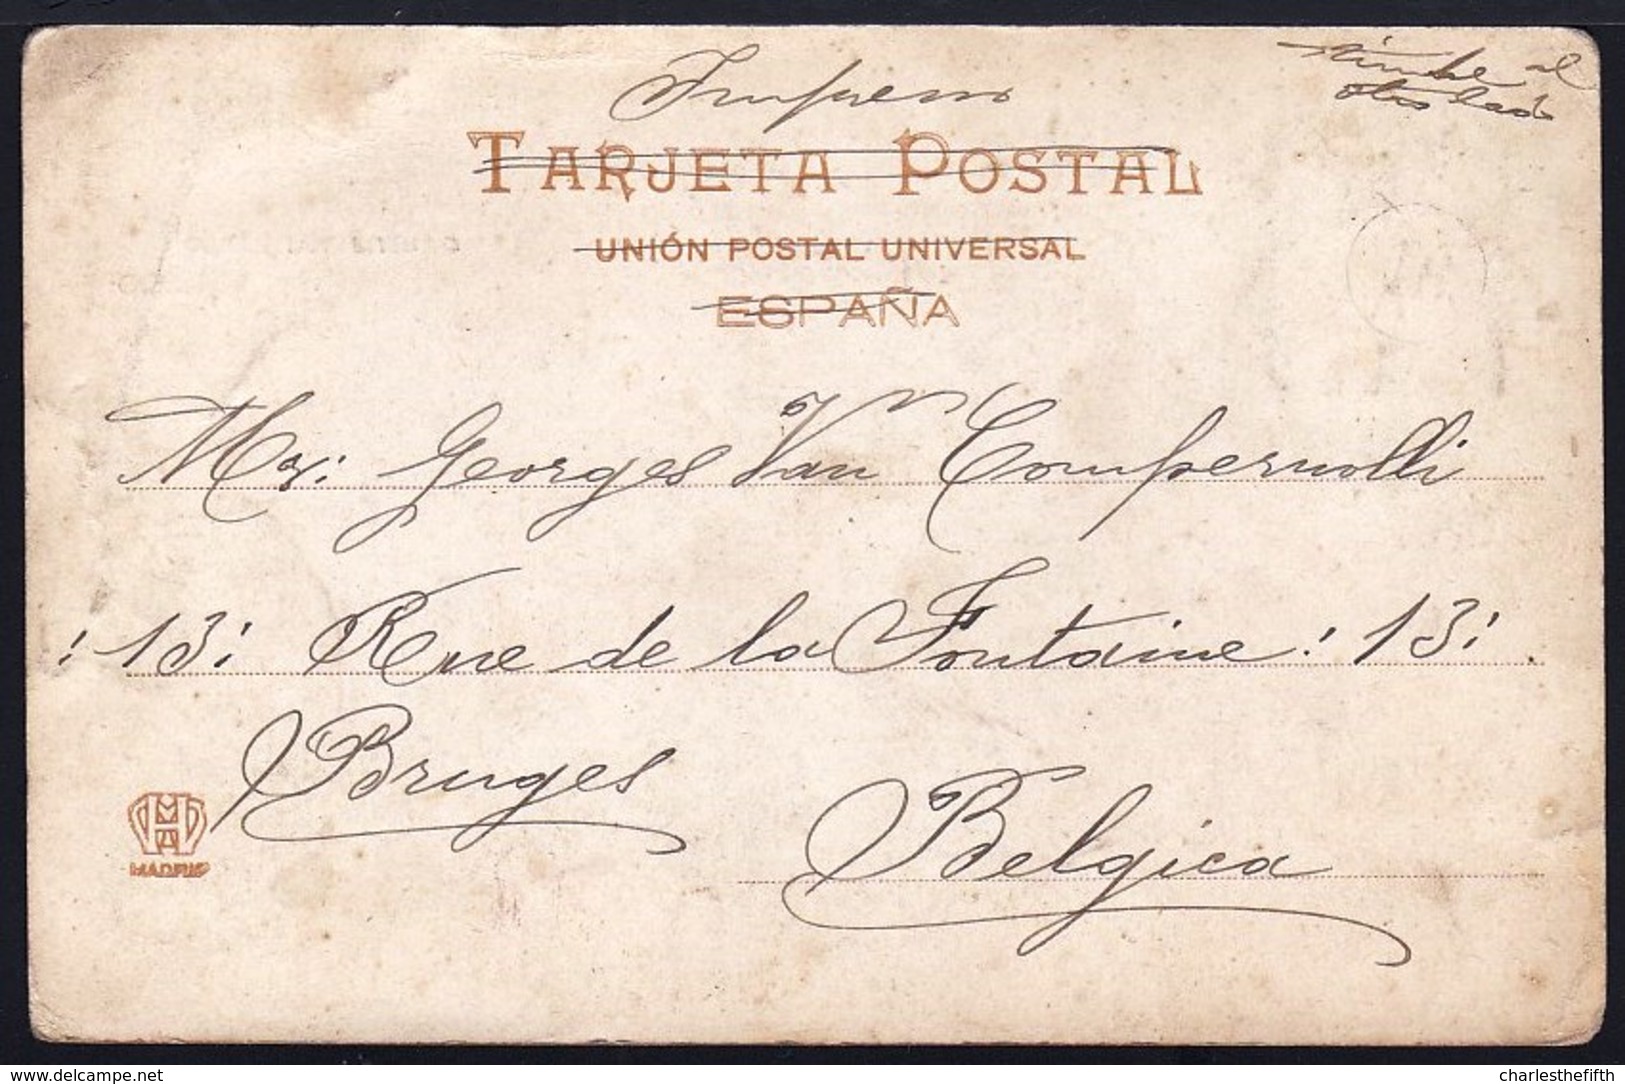 Impreso
timbre al
otro lado
TARJETA POSTAL
UNIÓN POSTAL UNIVERSAL
ESPAÑA
Mr: Georges Van Compernolli
: 13: Rue de la Fontaine: 13:
Bruges
Belgica
MADRID
delcampe.net
charlesthefifth